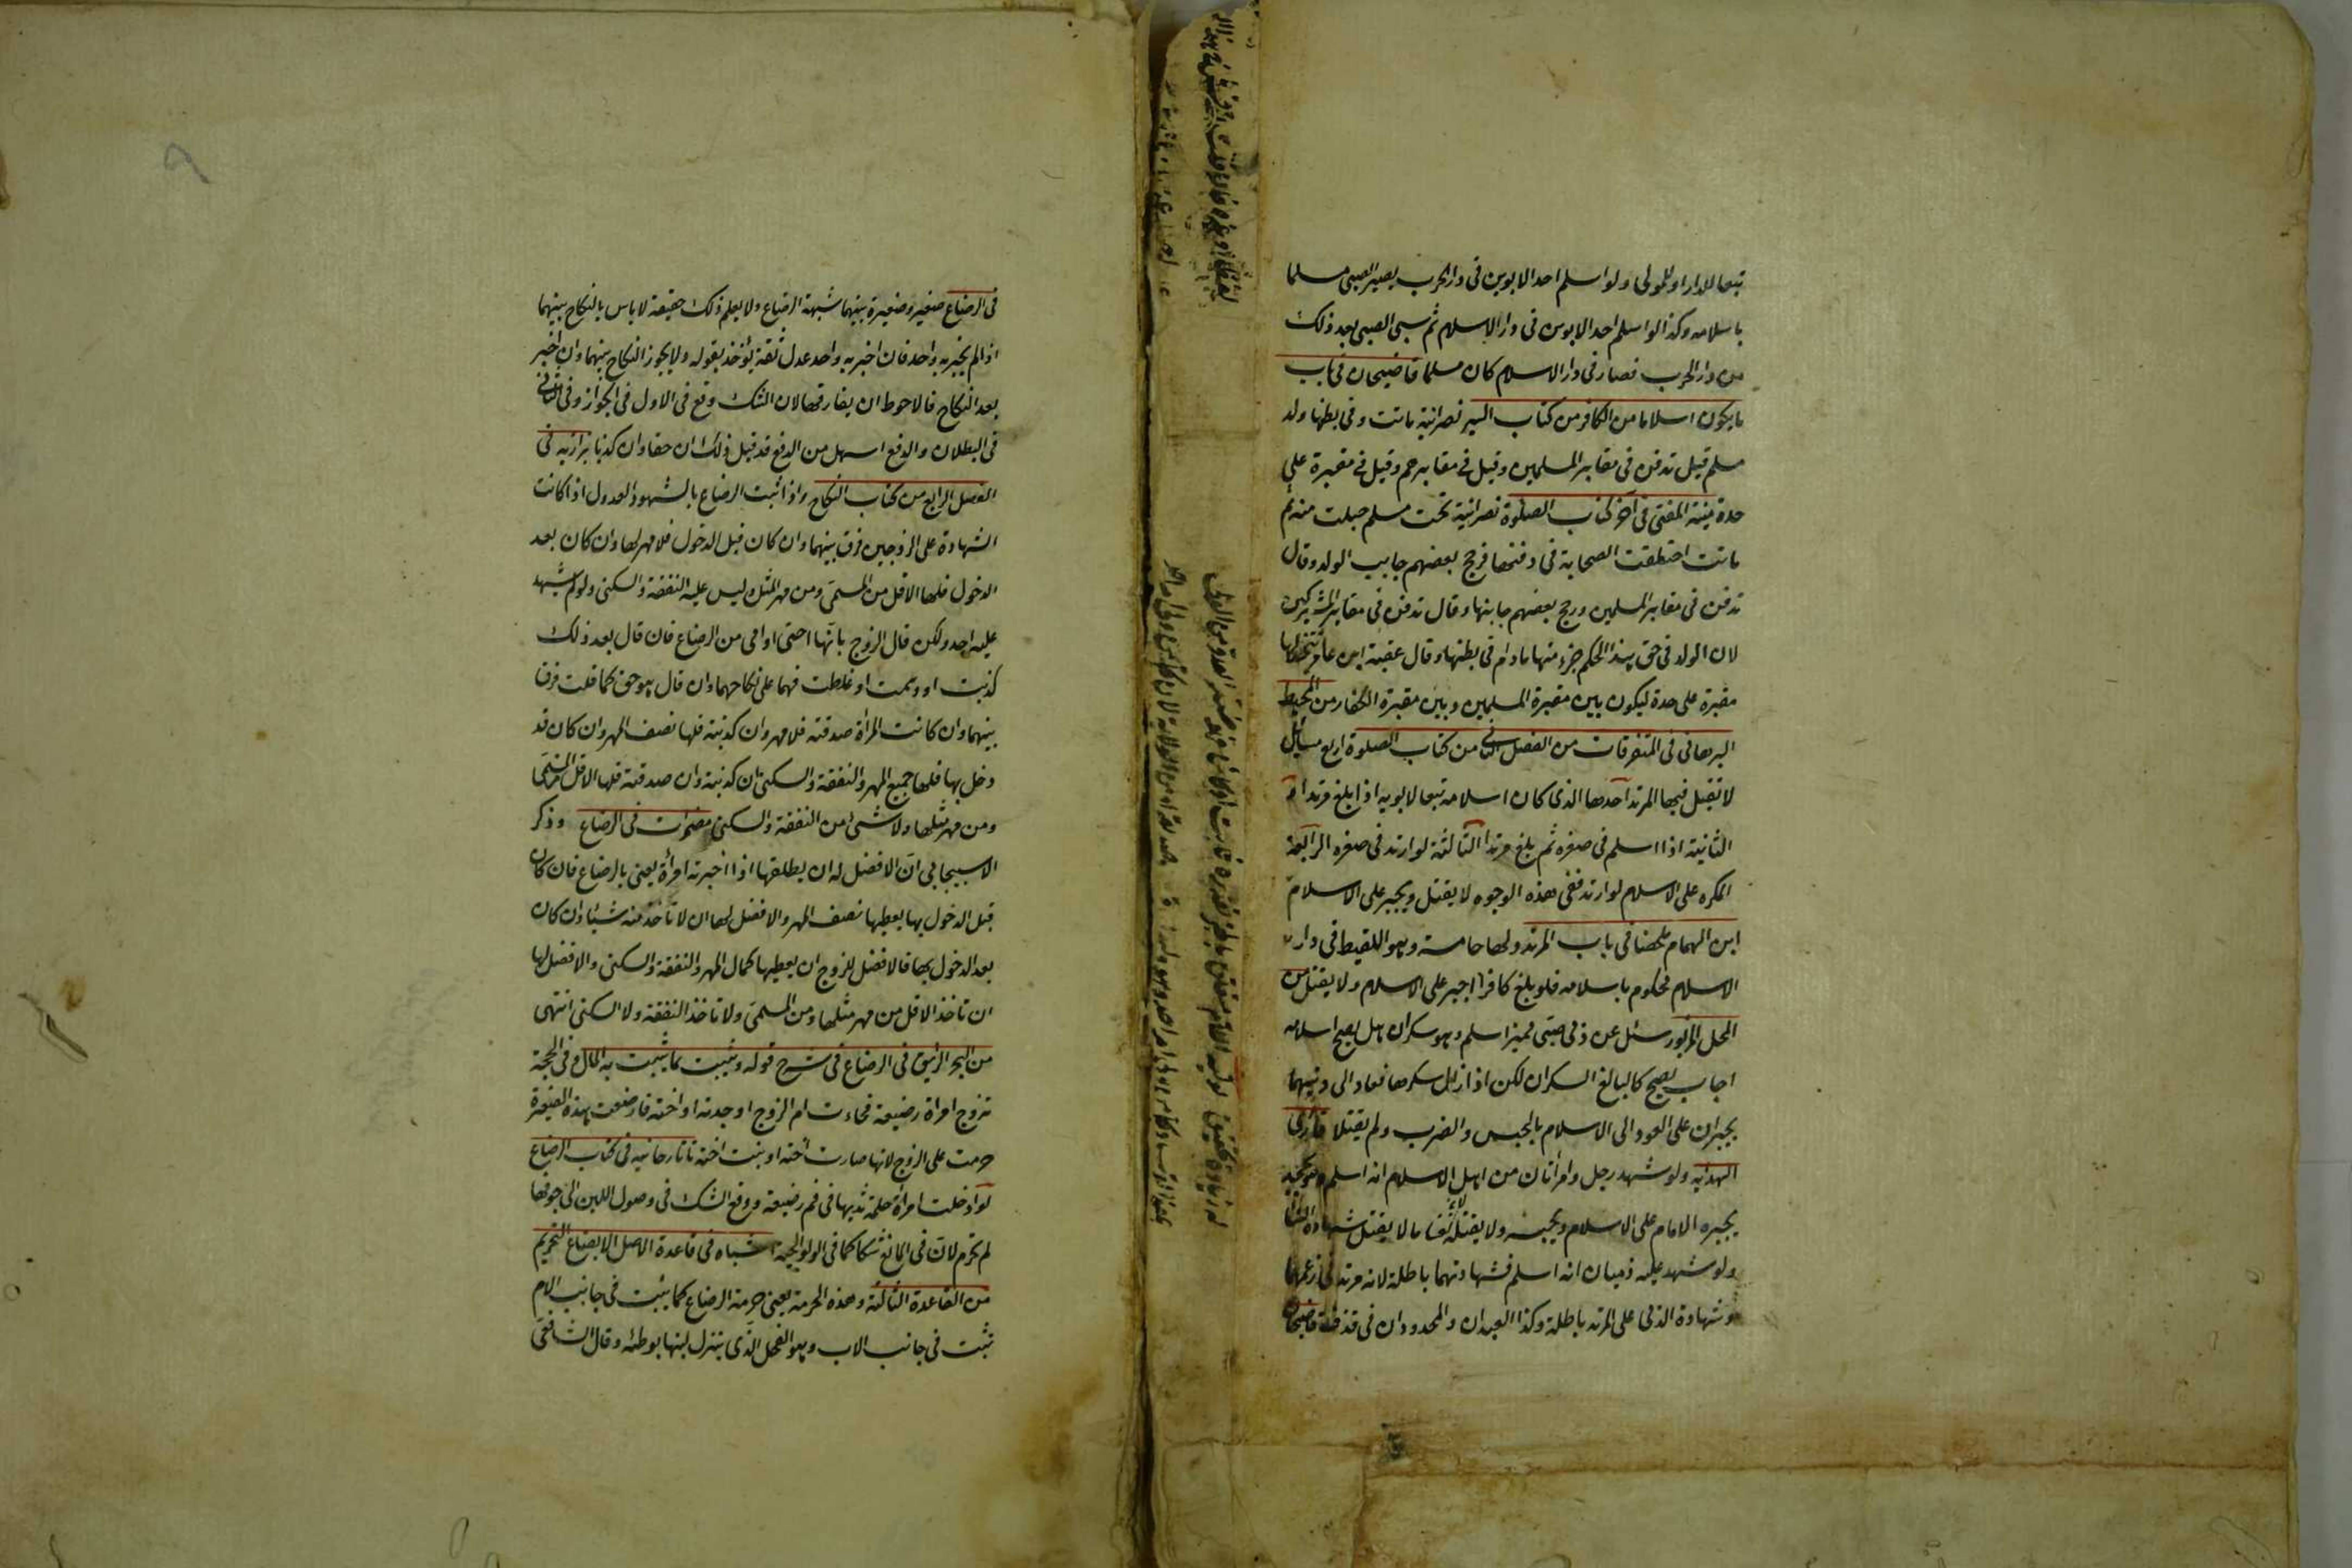 تبعا للدار او للمولى ولو اسلم احد الابوين فى دار الحرب يصير الصبى مسلما
باسلامه وكذا لو اسلم احد الابوين فى دار الاسلام ثم سبى الصبى بعد ذلك
من دار الحرب فصار فى دار الاسلام كان مسلما قاضيخان فى باب
ما يكون اسلاما من الكافر من كتاب السير نصرانية ماتت وفى بطنها ولد
مسلم قيل تدفن فى مقابر المسلمين وقيل فى مقابرهم وقيل فى مقبرة على
حدة منية المفتى فى آخر كتاب الصلوة نصرانية تحت مسلم حبلت منه ثم
ماتت اختلفت الصحابة فى دفنها فرجح بعضهم جانب الولد وقال
تدفن فى مقابر المسلمين ورجح بعضهم جانبها وقال تدفن فى مقابر المشركين
لان الولد فى حق هذا الحكم جزء منها مادام فى بطنها وقال عقبة ابن عامر تتخذ لها
مقبرة على حدة ليكون بين مقبرة المسلمين وبين مقبرة الكفار من المحيط
البرهانى فى المتفرقات من الفصل الثانى من كتاب الصلوة اربع مسائل
لا تقبل فيها المرتد احدها الذى كان اسلامه تبعا لابويه اذا بلغ مرتدا
الثانية اذا اسلم فى صغره ثم بلغ مرتدا الثالثة لو ارتد فى صغره الرابعة
المكره على الاسلام لو ارتد ففى هذه الوجوه لا يقتل ويجبر على الاسلام
ابن الهمام ملخصا فى باب المرتد ولها خامسة وهو اللقيط فى دار
الاسلام محكوم باسلامه فلو بلغ كافرا اجبر على الاسلام ولا يقتل من
المحل المزبور سئل عن ذمى صبى مميز اسلم وهو سكران هل يصح اسلامه
اجاب يصح كالبالغ السكران لكن اذا زال سكرهما فعاد الى دينهما
يجبران على العود الى الاسلام بالحبس والضرب ولم يقتلا قارئ
الهداية ولو شهد رجل وامرأتان من اهل الاسلام انه اسلم وهو يجحد
يجبره الامام على الاسلام ويحبسه ولا يقتله لان نفسا ما لا يقتل بشهادة النساء
ولو شهد عليه ذميان انه اسلم فشهادتهما باطلة لانه مرتد فى زعمهما
وشهادة الذمى على المرتد باطلة وكذا العبدان والمحدودان فى قذف قاضيخان
فى الرضاع صغير وصغيرة بينهما شبهة الرضاع ولا يعلم ذلك حقيقة لا باس بالنكاح بينهما
اذا لم يخبر به واحد فان اخبر به واحد عدل ثقة يؤخذ بقوله ولا يجوز النكاح بينهما وان اخبر
بعد النكاح فالاحوط ان يفارقها لان الشك وقع فى الاول فى الجواز وفى الثانى
فى البطلان والدفع اسهل من الرفع قد قيل ذلك ان حقا وان كذبا بزازيه فى
الفصل الرابع من كتاب النكاح واذا ثبت الرضاع بالشهود العدول اذا كانت
الشهادة على الزوجين فرق بينهما وان كان قبل الدخول فلا مهر لها وان كان بعد
الدخول فلها الاقل من المسمى ومن مهر المثل وليس عليه النفقة والسكنى ولو لم يشهد
عليه احد ولكن قال الزوج بانها اختى او امى من الرضاع فان قال بعد ذلك
كذبت او وهمت او غلطت فهما على نكاحهما وان قال هو حق كما قلت فرق
بينهما وان كانت المرأة صدقته فلا مهر وان كذبته فلها نصف المهر وان كان قد
دخل بها فلها جميع المهر والنفقة والسكنى ان كذبته وان صدقته فلها الاقل من المسمى
ومن مهر مثلها ولا شئ من النفقة والسكنى مضمرات فى الرضاع وذكر
الاسبيجابى ان الافضل له ان يطلقها اذا اخبرته امرأة يعنى بالرضاع فان كان
قبل الدخول بها يعطيها نصف المهر والافضل لها ان لا تأخذ منه شيئا وان كان
بعد الدخول بها فالافضل للزوج ان يعطيها كمال المهر والنفقة والسكنى والافضل لها
ان تاخذ الاقل من مهر مثلها ومن المسمى ولا تاخذ النفقة ولا السكنى انتهى
من البحر الرايق فى الرضاع فى شرح قوله ويثبت بما يثبت به المال وفى الحجة
تزوج امرأة رضيعة فجاءت ام الزوج او جدته او اخته فارضعت هذه الصغيرة
حرمت على الزوج لانها صارت اخته او بنت اخته تاتارخانيه فى كتاب الرضاع
لو ادخلت امرأة حلمة ثديها فى فم رضيعة ووقع الشك فى وصول اللبن الى جوفها
لم تحرم لان فى المانع شكا كما فى الولوالجية اشباه فى قاعدة الاصل الابضاع التحريم
من القاعدة الثالثة وهذه الحرمة يعنى حرمة الرضاع كما يثبت فى جانب الام
تثبت فى جانب الاب وهو الفحل الذى ينزل لبنها بوطئه وقال الشافعى